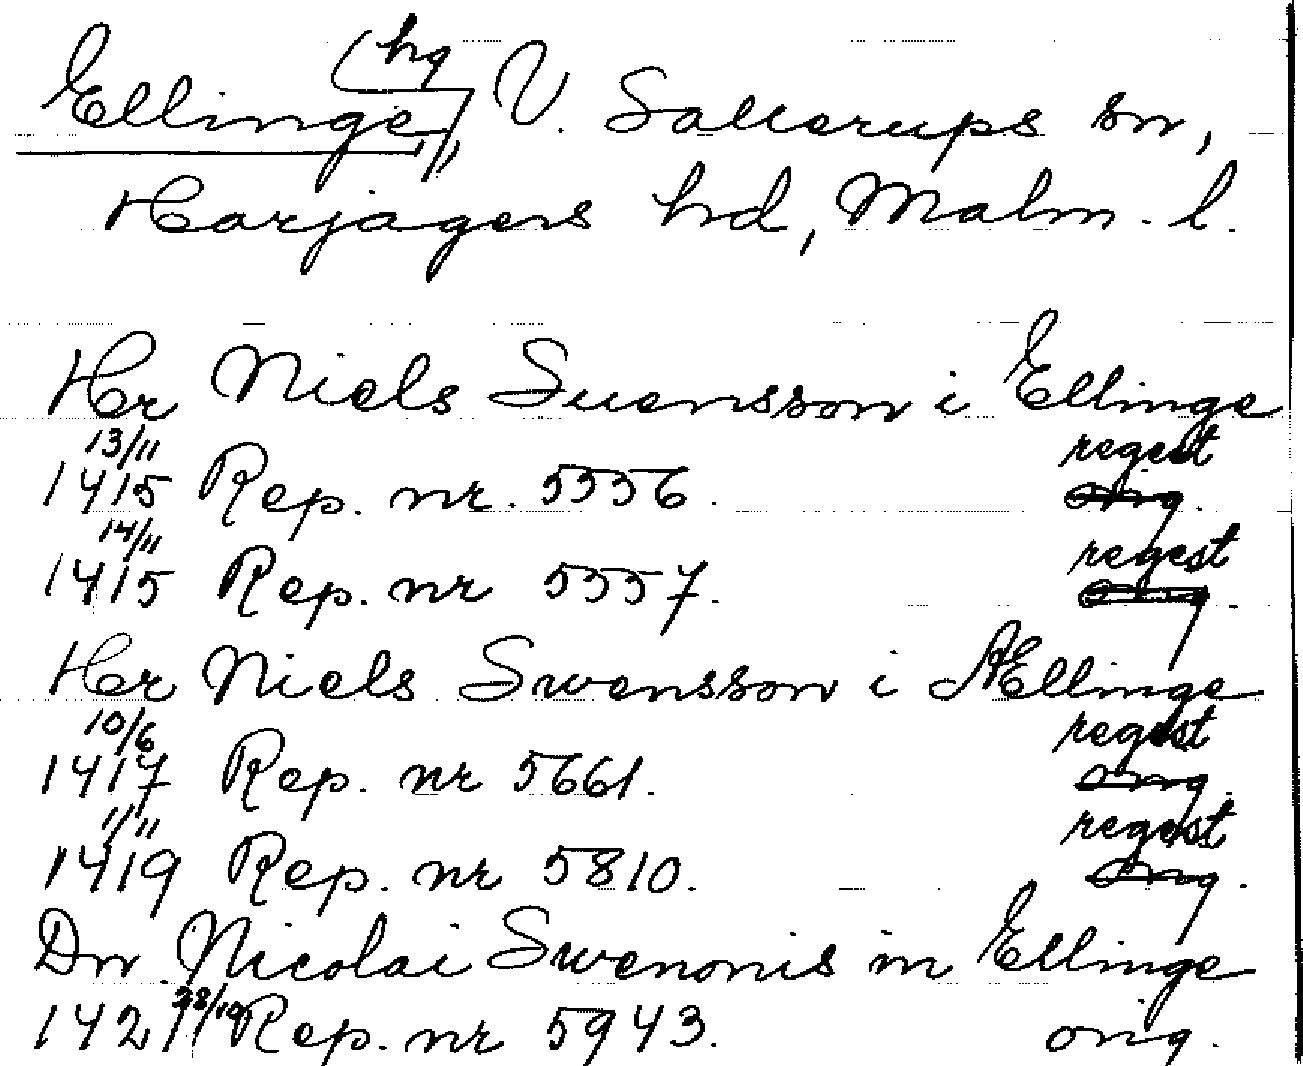 Ellinge, (hg) V. Sallerups sn,
Harjagers hd, Malm. l.
Her Niels Suensson i Ellinge
13/11 regest
1415 Rep. nr. 5556. orig.
14/11 regest
1415 Rep. nr 5557. orig.
Her Niels Swensson i Ællinge
10/6 regest
1417 Rep. nr 5661. orig.
1/11 regest
1419 Rep. nr 5810. orig.
Dn. Nicolai Swenonis in Ellinge
1421 28/10 Rep. nr 5943. orig.